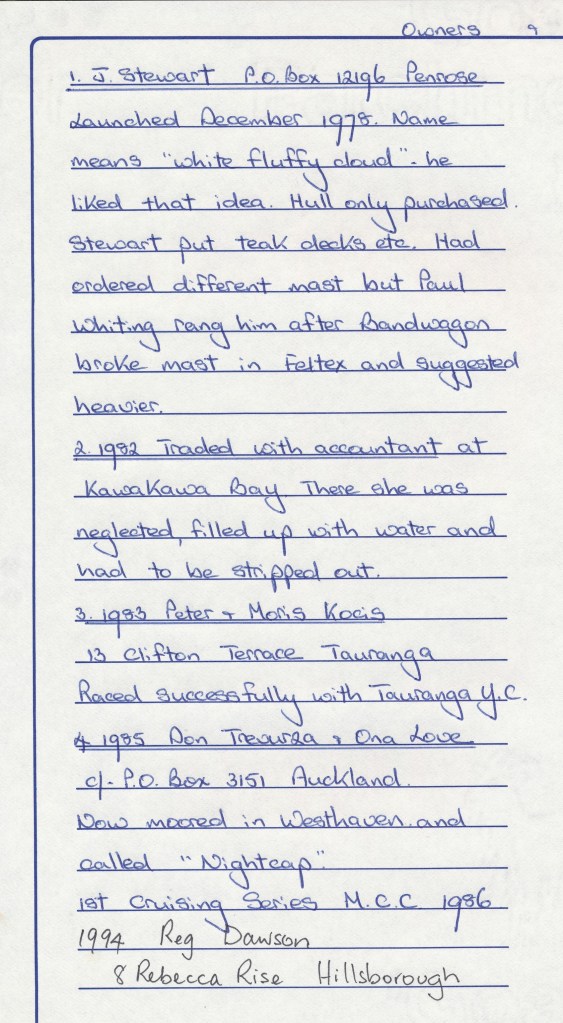 Owners 9
1. J. Stewart P.O. Box 12196 Penrose
Launched December 1978. Name
means "white fluffy cloud" - he
liked that idea. Hull only purchased.
Stewart put teak decks etc. Had
ordered different mast but Paul
Whiting rang him after Bandwagon
broke mast in Feltex and suggested
heavier.
2. 1982 Traded with accountant at
KawaKawa Bay. There she was
neglected, filled up with water and
had to be stripped out.
3. 1983 Peter + Moris Kocis
13 Clifton Terrace Tauranga
Raced successfully with Tauranga Y.C.
4 1985 Don Trevurza & Ona Love
c/- P.O. Box 3151 Auckland.
Now moored in Westhaven and
called "Nightcap".
1st Cruising Series M.C.C 1986
1994 Reg Dawson
8 Rebecca Rise Hillsborough